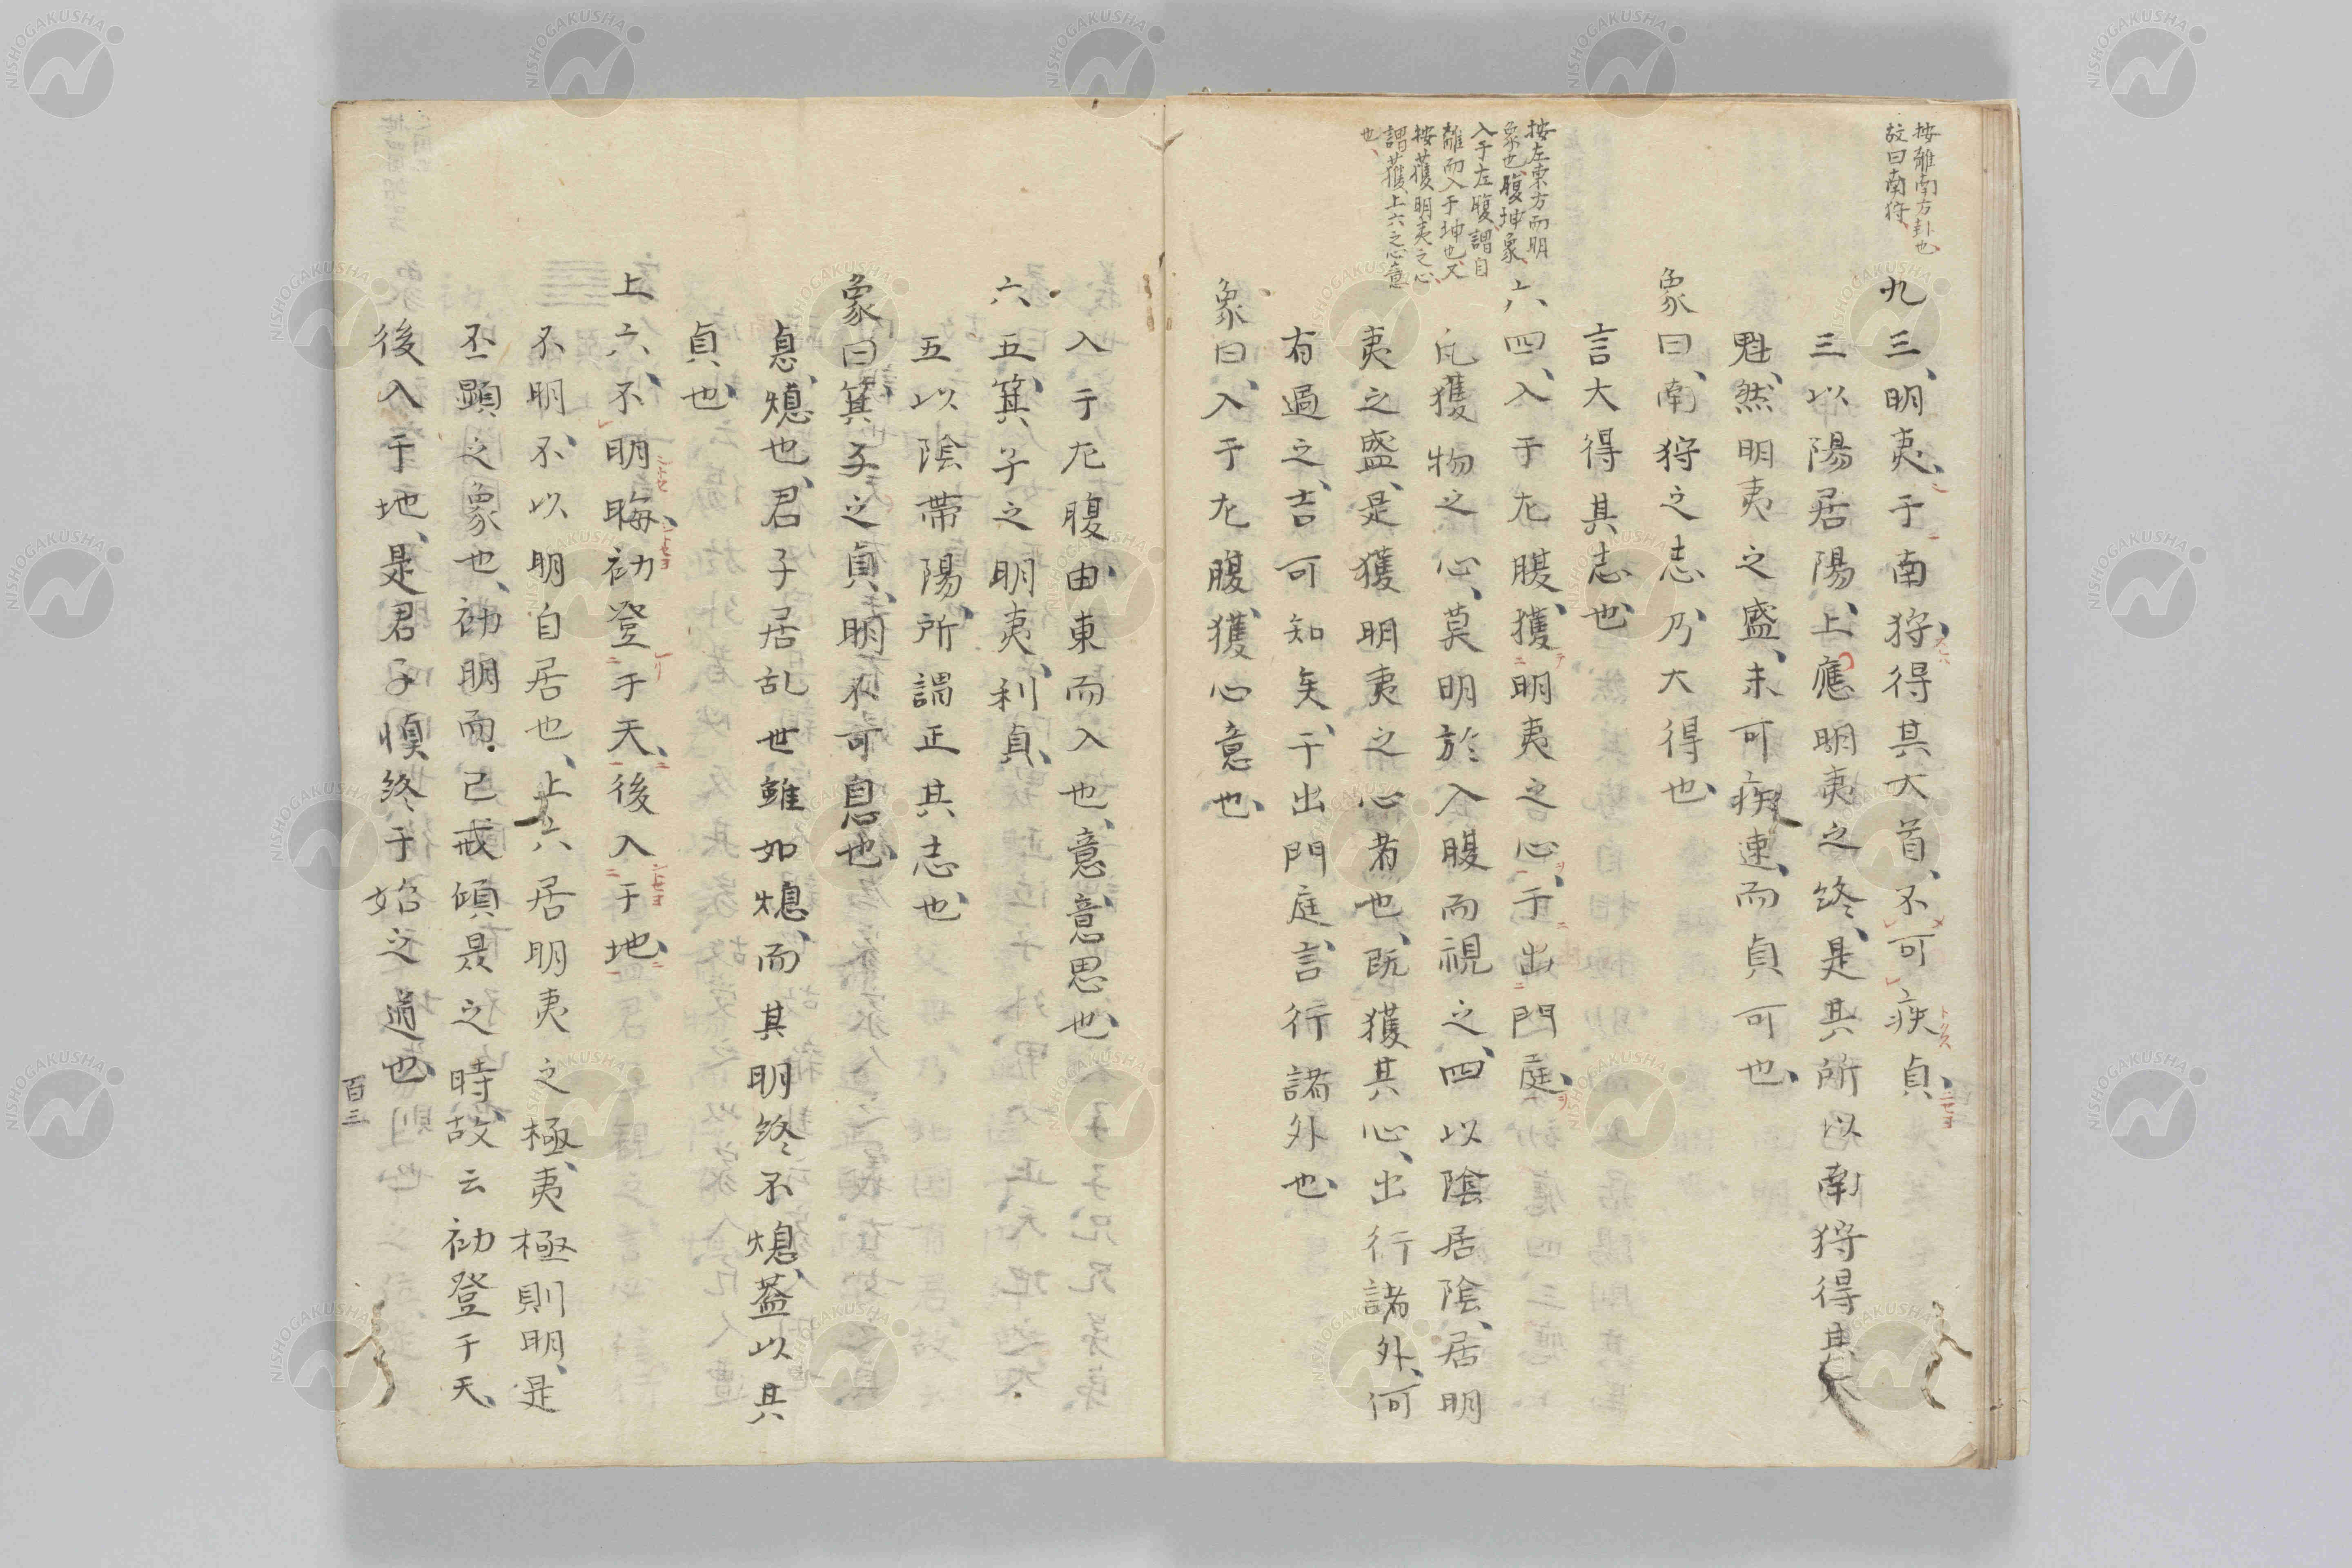 按離南方卦也
故曰南狩、
九三、明夷、于南狩、得其大首、不可疾貞、
三以陽居陽、上應明夷之終、是其所以南狩得其大
魁、然明夷之盛、未可疾速、而貞可也、
象曰、南狩之志、乃大得也、
言大得其志也、
按左東方而明
象也、腹坤象、
入于左腹、謂自
離而入于坤也、又
按獲明夷之心、
謂獲上六之心意
也、
六四、入于左腹、獲明夷之心、于出門庭、
凡獲物之心、莫明於入腹而視之、四以陰居陰、居明
夷之盛、是獲明夷之心者也、既獲其心、出行諸外、何
有過之、吉可知矣、于出門庭、言行諸外也、
象曰、入于左腹、獲心意也、
入于左腹、由東而入也、意、意思也、
六五、箕子之明夷、利貞、
五以陰帶陽、所謂正其志也、
象曰、箕子之貞、明不可息也、
息、熄也、君子居乱世、雖如熄、而其明終不熄、蓋以其
貞也、
上六、不明晦、初登于天、後入于地、
不明明、不以明自居也、上六居明夷之極、夷極則明、是
丕顕之象也、初明而已、戒傾昃之時、故云初登于天、
後入于地、是君子慎終于始之道也、
百三
NISHOGAKUSHA